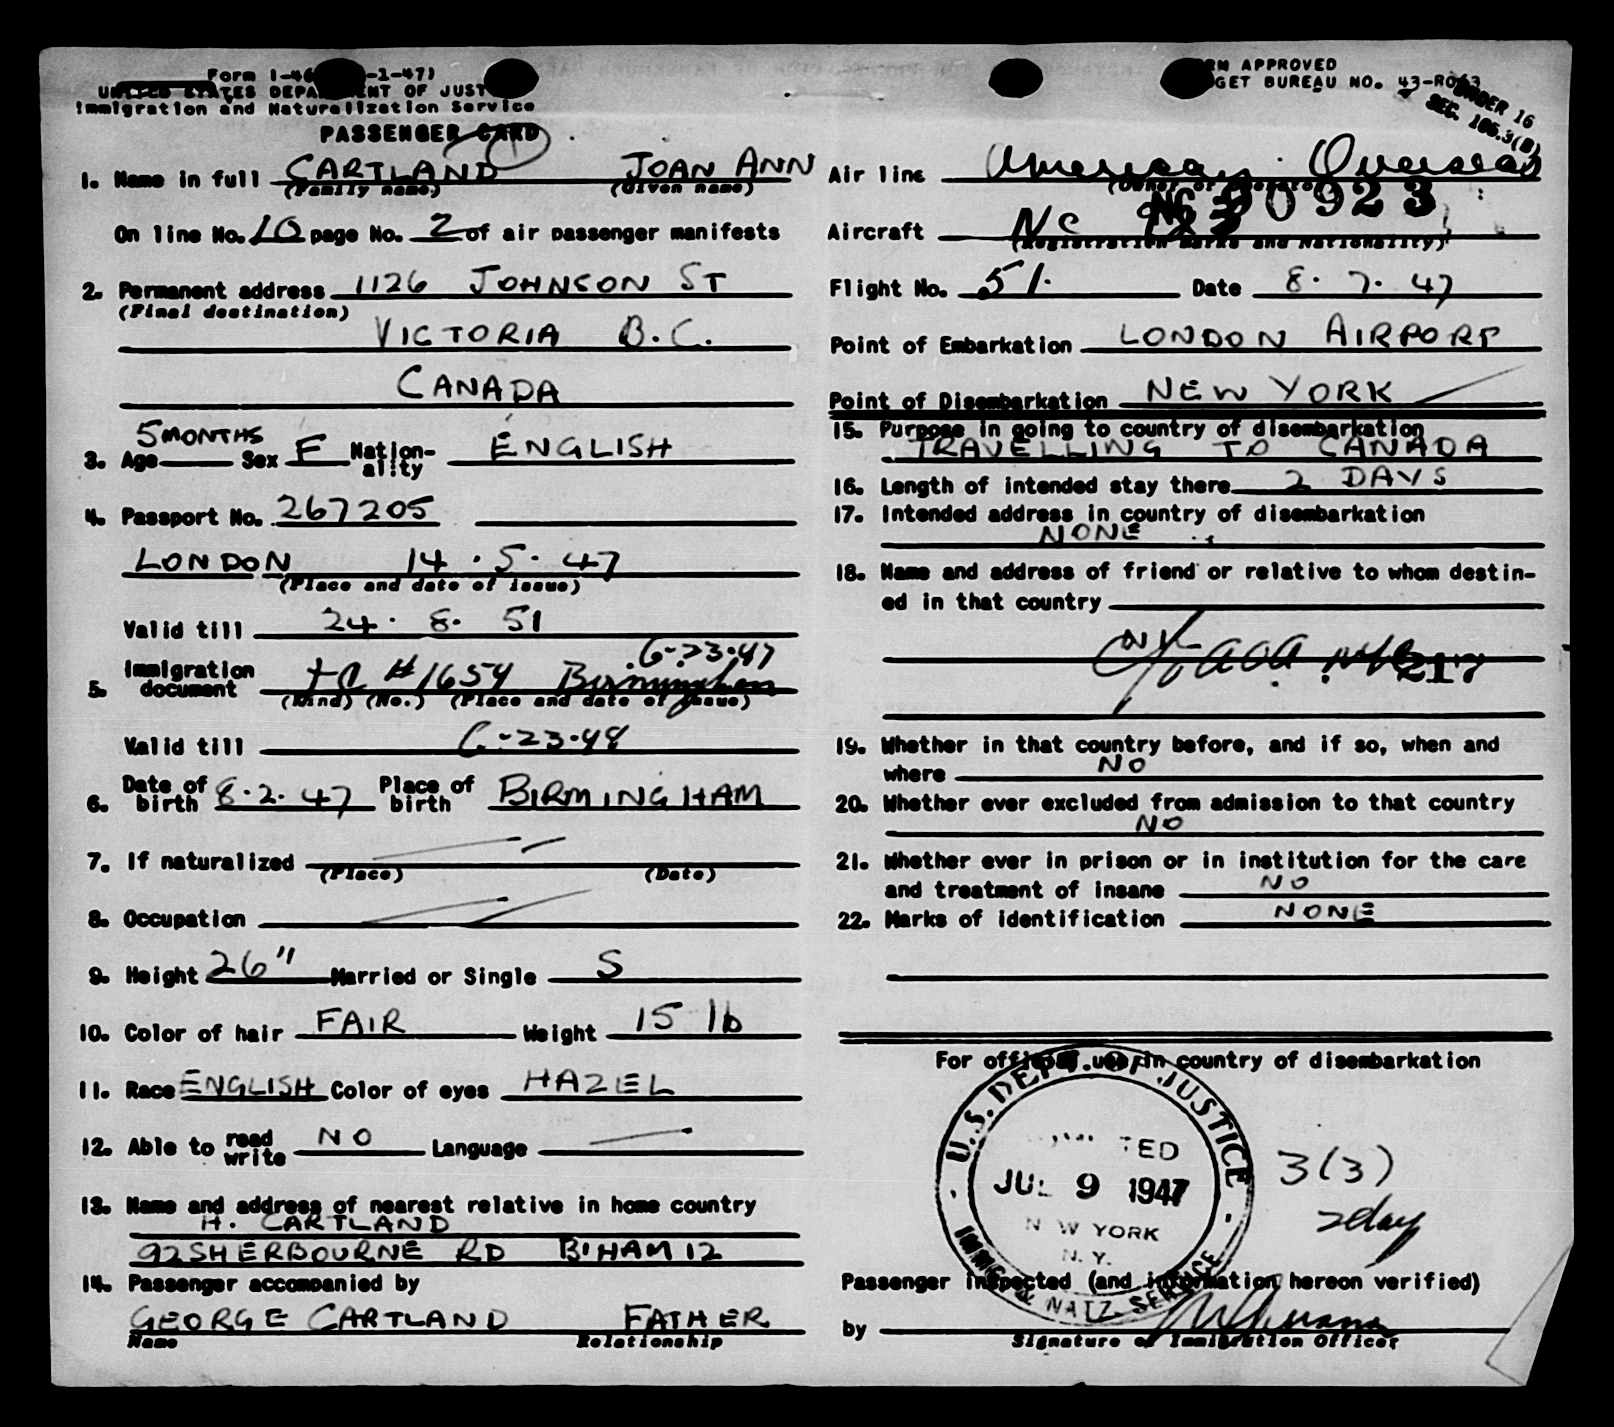 Form I-46 -1-47)
UNITED STATES DEPARTMENT OF JUST
Immigration and Naturalization Service
PASSENGER CARD
1. Name in full CARTLAND JOAN ANN
(Family name) (Given name)
On line No. 10 page No. 2 of air passenger manifests
2. Permanent address 1126 JOHNSON ST
(Final destination)
VICTORIA B.C.
CANADA
3. Age 5 MONTHS Sex F Nation-ality ENGLISH
4. Passport No. 267205
LONDON 14.5.47
(Place and date of issue)
Valid till 24.8.51
5. Immigration document #1654 Birmingham 6-23-47
(Kind) (No.) (Place and date of issue)
Valid till 6-23-48
6. Date of birth 8.2.47 Place of birth BIRMINGHAM
7. If naturalized
(Place) (Date)
8. Occupation
9. Height 26" Married or Single S
10. Color of hair FAIR Weight 15 lb
11. Race ENGLISH Color of eyes HAZEL
12. Able to read write NO Language
13. Name and address of nearest relative in home country
H. CARTLAND
92 SHERBOURNE RD B'HAM 12
14. Passenger accompanied by
GEORGE CARTLAND FATHER
Name Relationship
RM APPROVED
GET BUREAU NO. 43-R063
UNDER 16
SEC. 105.3(B)
Air line American Overseas
(Owner or operator)
Aircraft NC 90923
(Registration marks and nationality)
Flight No. 51. Date 8.7.47
Point of Embarkation LONDON AIRPORT
Point of Disembarkation NEW YORK
15. Purpose in going to country of disembarkation
TRAVELLING TO CANADA
16. Length of intended stay there 2 DAYS
17. Intended address in country of disembarkation
NONE
18. Name and address of friend or relative to whom destin-
ed in that country
19. Whether in that country before, and if so, when and
where NO
20. Whether ever excluded from admission to that country
NO
21. Whether ever in prison or in institution for the care
and treatment of insane NO
22. Marks of identification NONE
For official use in country of disembarkation
U.S. DEPT. OF JUSTICE
TED
JUL 9 1947
NEW YORK
N.Y.
IMMIG. & NATZ. SERVICE
3(3)
2 day
Passenger inspected (and information hereon verified)
by
Signature of Immigration Officer